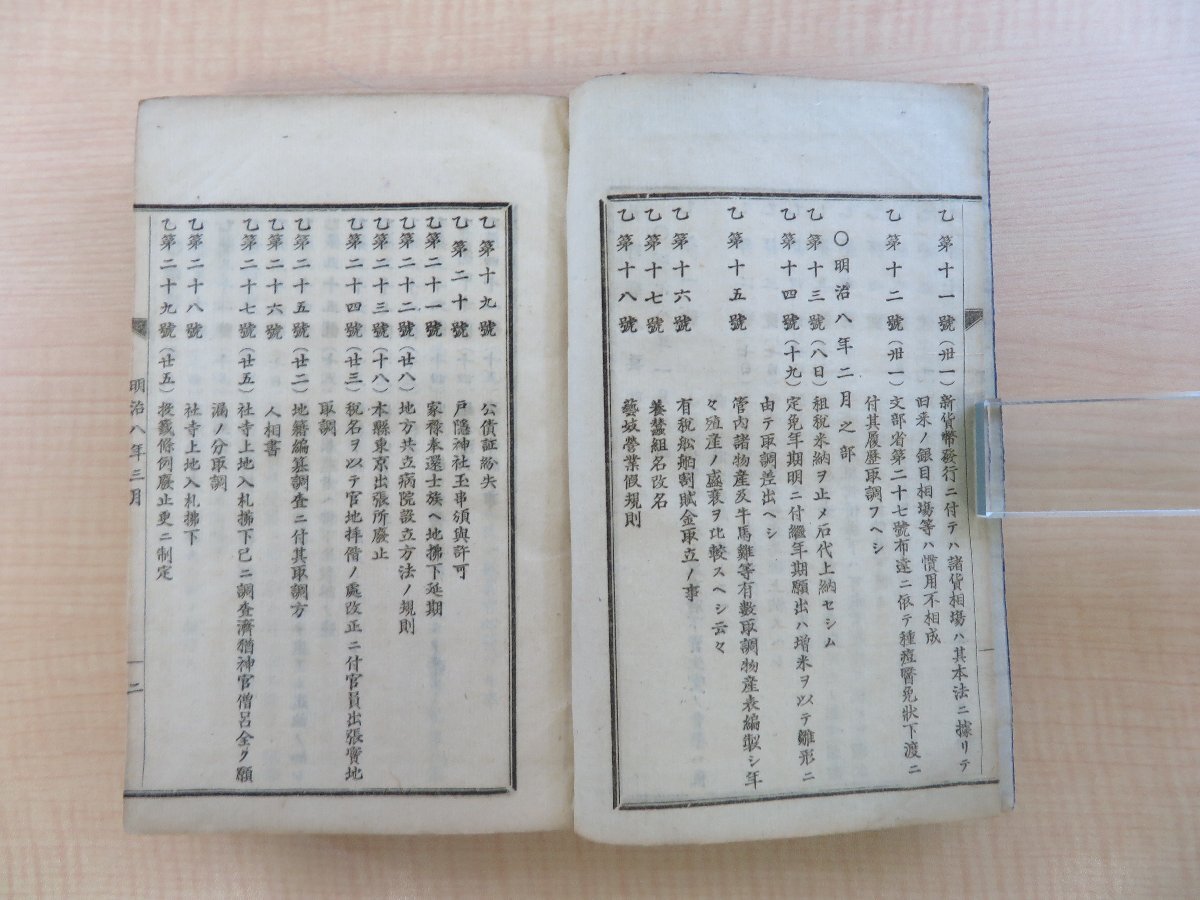 乙第十一號(卅一)新貨幣發行ニ付テハ諸貨相場ハ其本法ニ據リテ
旧来ノ銀目相場等ハ慣用不相成
乙第十二號(卅一)文部省第二十七號布達ニ依テ種痘醫免狀下渡ニ
付其履歴取調フヘシ
〇明治八年二月之部
乙第十三號(八日)租税米納ヲ止メ石代上納セシム
乙第十四號(十九)定免年期明ニ付繼年期願出ハ増米ヲ以テ雛形ニ
由テ取調差出ヘシ
乙第十五號 管内諸物産及牛馬雞等有數取調物産表編製シ年
々殖産ノ盛衰ヲ比較スヘシ云々
乙第十六號 有税舩舶割賦金取立ノ事
乙第十七號 養蠶組名改名
乙第十八號 藝妓營業假規則
一
乙第十九號 公債証紛失
乙第二十號 戸隱神社玉串頒與許可
乙第二十一號 家祿奉還士族ヘ地拂下延期
乙第二十二號(廿八)地方共立病院設立方法ノ規則
乙第二十三號(十八)本縣東京出張所廢止
乙第二十四號(廿三)税名ヲ以テ官地拝借ノ處改正ニ付官員出張實地
取調
乙第二十五號(廿二)地籍編纂調査ニ付其取調方
乙第二十六號 人相書
乙第二十七號(廿五)社寺上地入札拂下已ニ調査濟猶神官僧呂全ク願
漏ノ分取調
乙第二十八號 社寺上地入札拂下
乙第二十九號(廿五)投籤條例廢止更ニ制定
明治八年三月
二